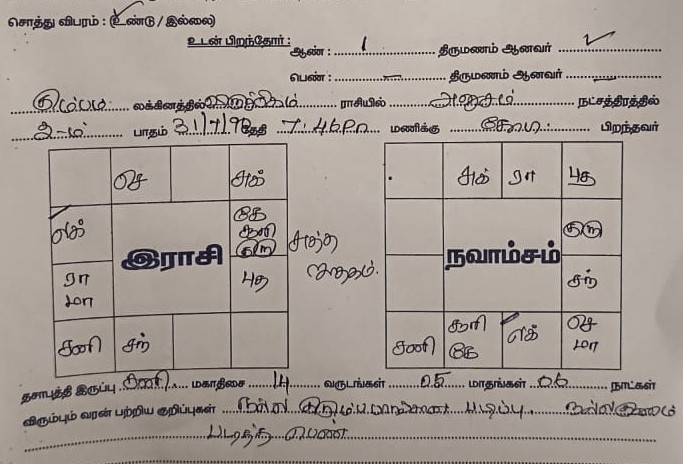 சொத்து விபரம் : (உண்டு / இல்லை)
உடன் பிறந்தோர் : ஆண் : 1 திருமணம் ஆனவர்
பெண் : — திருமணம் ஆனவர் —
கும்பம் லக்கினத்தில் விருச்சிகம் ராசியில் அனுசம் நட்சத்திரத்தில்
2-ம் பாதம் 31/7/90 தேதி 7:46 Pm மணிக்கு பிறந்தவர்
செ சுக்
லக் கே சூரி குரு
இராசி
ரா மா புத
சனி சந்
சுக் ரா புத
குரு
நவாம்சம்
சந்
சனி சூரி கே லக் செ மா
சுத்த ஜாதகம்.
தசாபுத்தி இருப்பு சனி மகாதிசை 14 வருடங்கள் 05 மாதங்கள் 06 நாட்கள்
விரும்பும் வரன் பற்றிய குறிப்புகள் நல்ல குடும்பமான படிப்பு நல்லகுணம்
படித்த பெண்